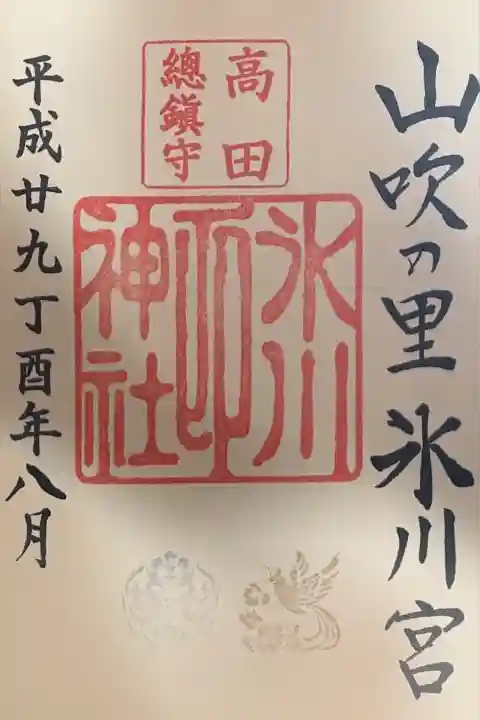 山吹の里 氷川宮
高田
總鎮守
氷川
印
神社
平成廿九丁酉年八月